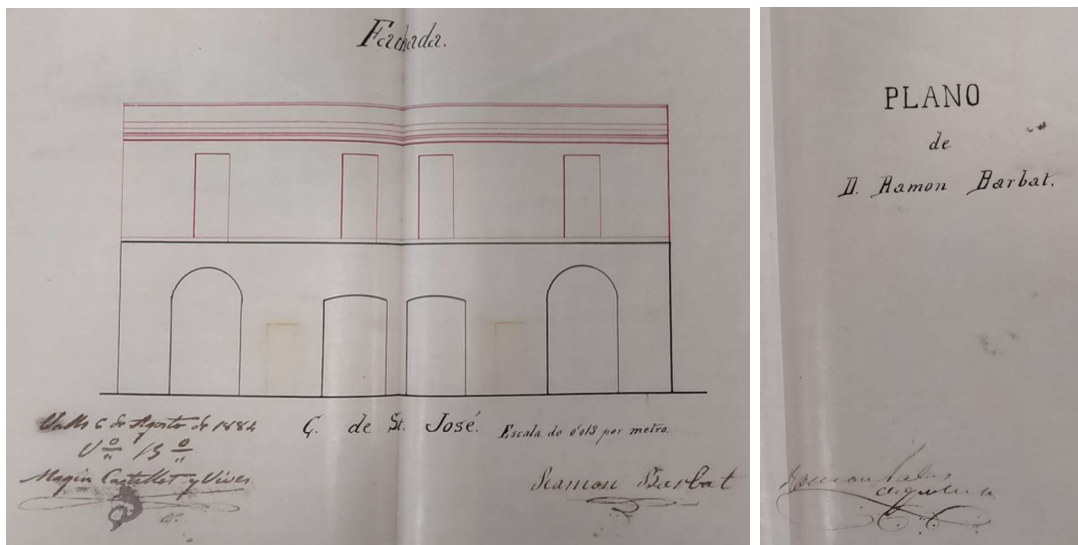 Fachada.
Valls 6 de Agosto de 1884
Vº Bº
Magin Castellet y Vives
C. de St. José.
Escala de 0'015 por metro.
Ramon Barbat
PLANO
de
D. Ramon Barbat.
Ramon Salas